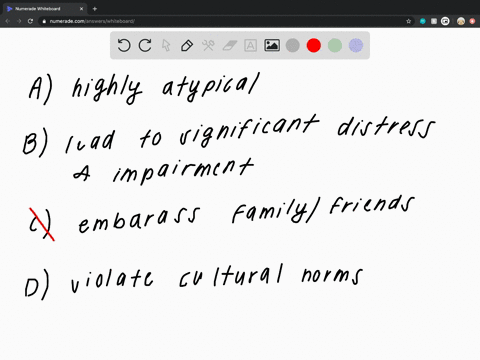 Numerade Whiteboard
numerade.com/answers/whiteboard/
A) highly atypical
B) lead to significant distress
& impairment
C) embarass family/friends
D) violate cultural norms